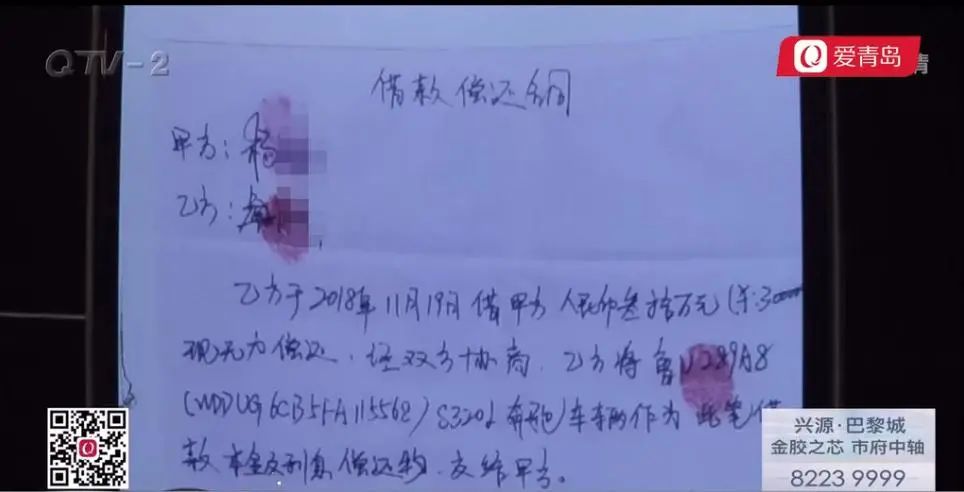 QTV-2
爱青岛
借款偿还合同
甲方：杨
乙方：
乙方于2018年11月19日借甲方人民币叁拾万元(¥:30
现无力偿还.经双方协商.乙方将鲁U289A8
(WDDUG6CB5FA115568)S320L奔驰车辆作为此笔借
款本金及利息偿还物.交给甲方。
兴源·巴黎城
金胶之芯 市府中轴
8223 9999